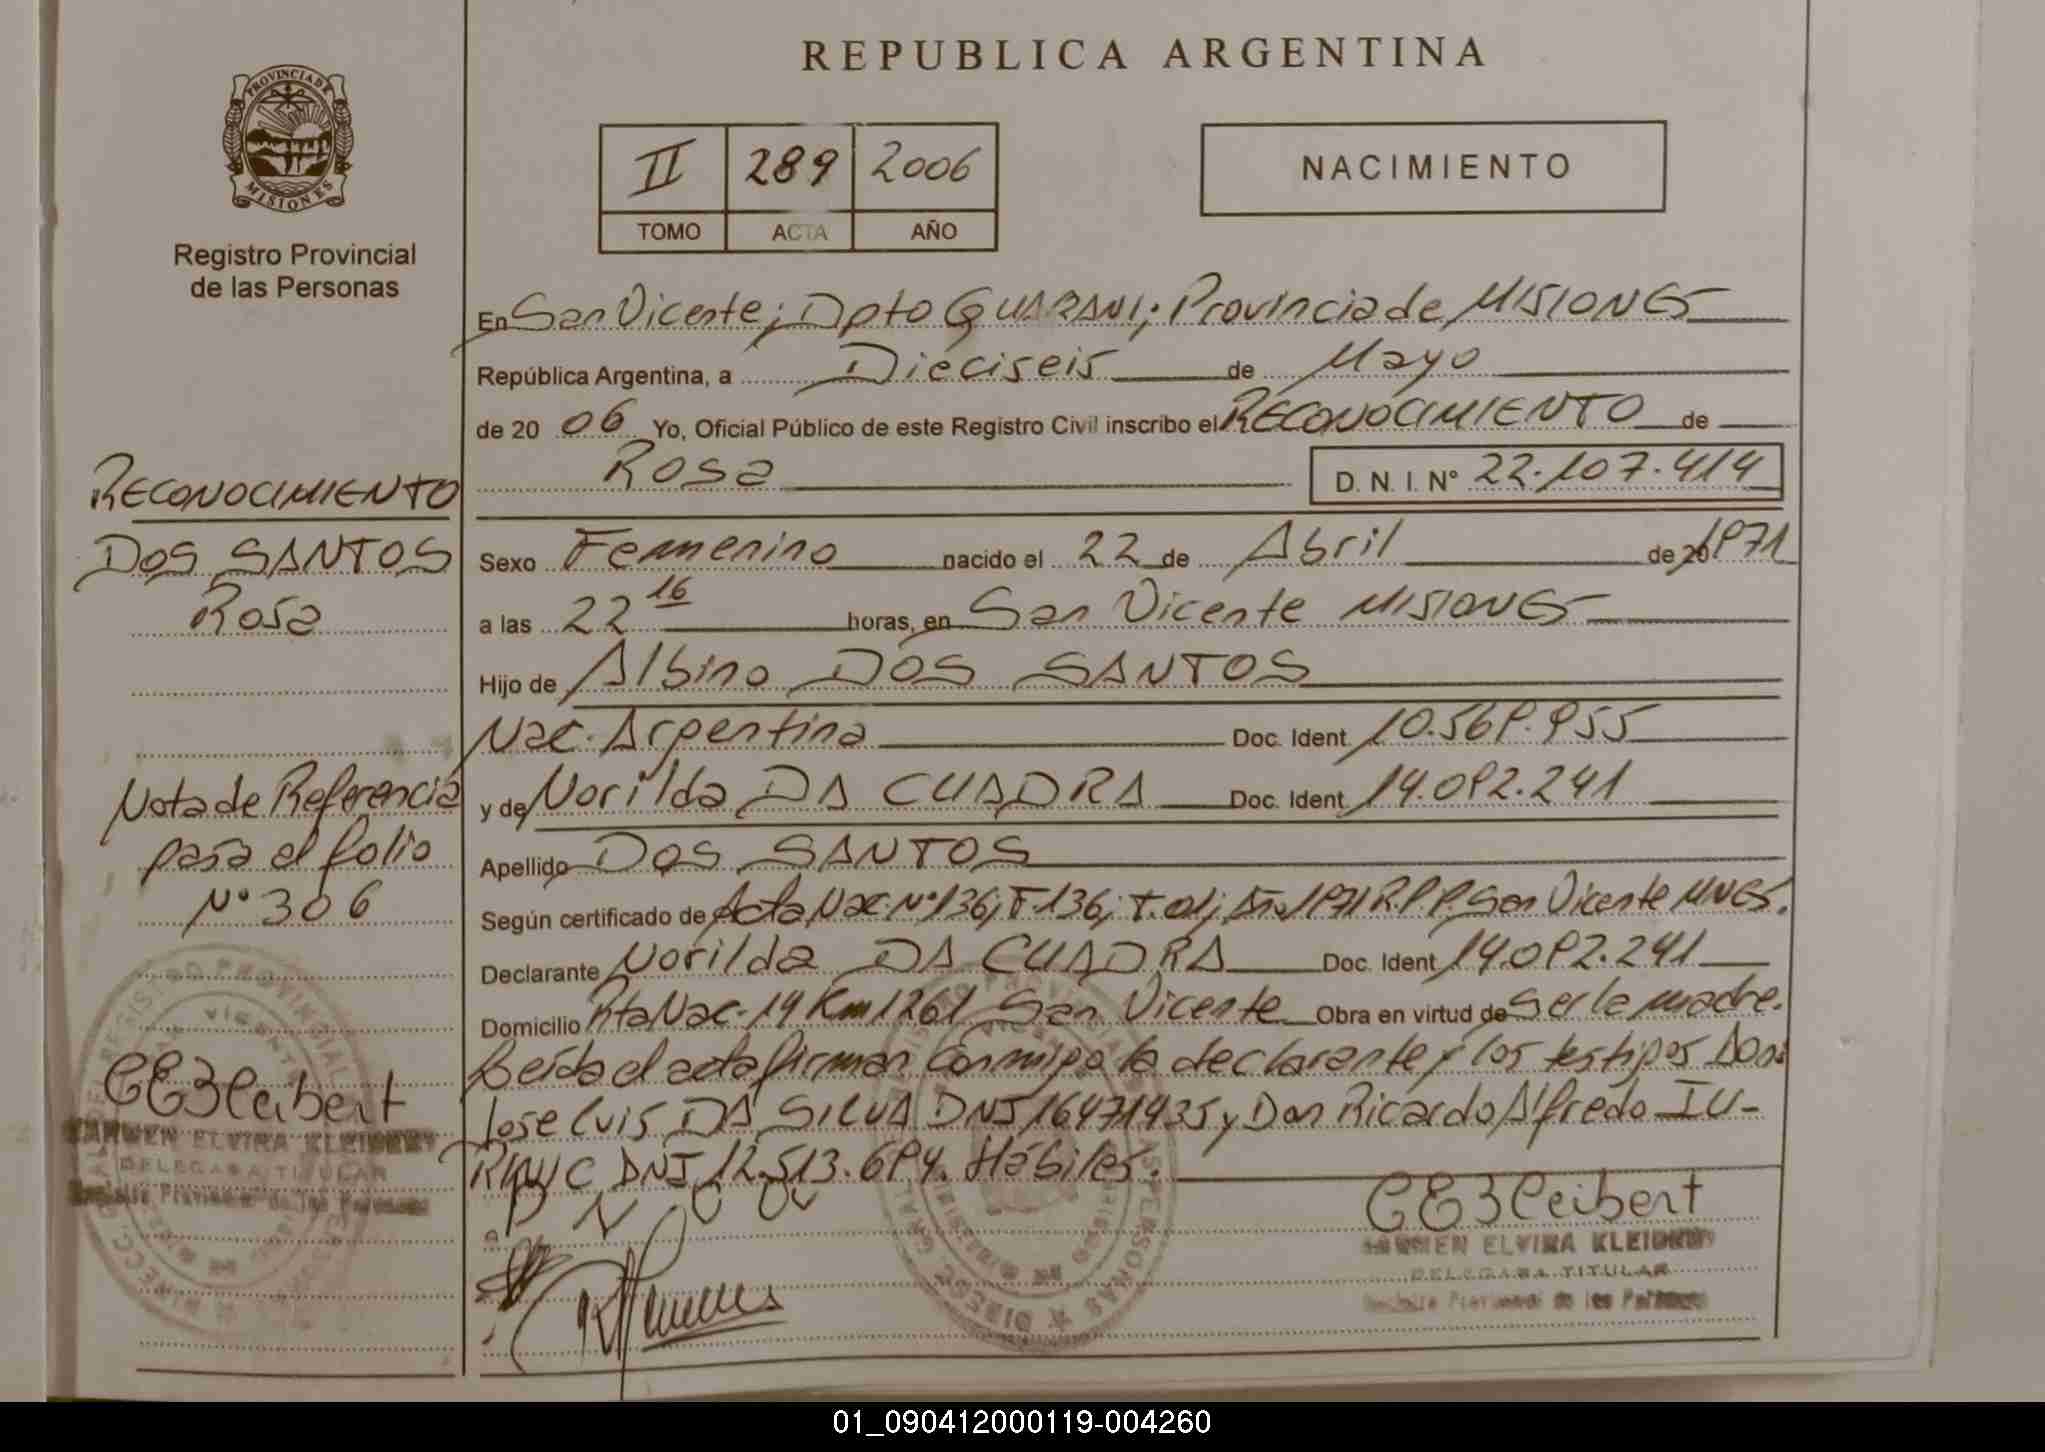 REPUBLICA ARGENTINA
PROVINCIA DE
MISIONES
Registro Provincial
de las Personas
II 289 2006
TOMO ACTA AÑO
NACIMIENTO
En San Vicente; Dpto GUARANI; Provincia de MISIONES
República Argentina, a Dieciseis de Mayo
de 20 06 Yo, Oficial Público de este Registro Civil inscribo el RECONOCIMIENTO de
Rosa D. N. I. Nº 22.107.414
Sexo Femenino nacido el 22 de Abril de 20 1971
a las 22 16 horas, en San Vicente MISIONES
Hijo de Albino DOS SANTOS
Nac. Argentina Doc. Ident. 10.569.955
y de Norilda DA CUADRA Doc. Ident. 14.092.241
Apellido DOS SANTOS
Según certificado de Acta Nac. Nº 136; F.136; T.01; Añ.1971 R.P.P. San Vicente MNES.
Declarante Norilda DA CUADRA Doc. Ident. 14.092.241
Domicilio Rta Nac. 14 Km 1261 San Vicente Obra en virtud de ser la madre.
Leída el acta firman conmigo la declarante y los testigos Don
Jose Luis DA SILVA DNI 16471435 y Don Ricardo Alfredo IU-
DNI 12.513.694. Hábiles.
RECONOCIMIENTO
DOS SANTOS
Rosa
Nota de Referencia
pasa al folio
Nº 306
CE3leibert
CARMEN ELVIRA KLEIBERT
DELEGADA TITULAR
Registro Provincial de las Personas
CE3leibert
CARMEN ELVIRA KLEIBERT
DELEGADA TITULAR
Registro Provincial de las Personas
01_090412000119-004260